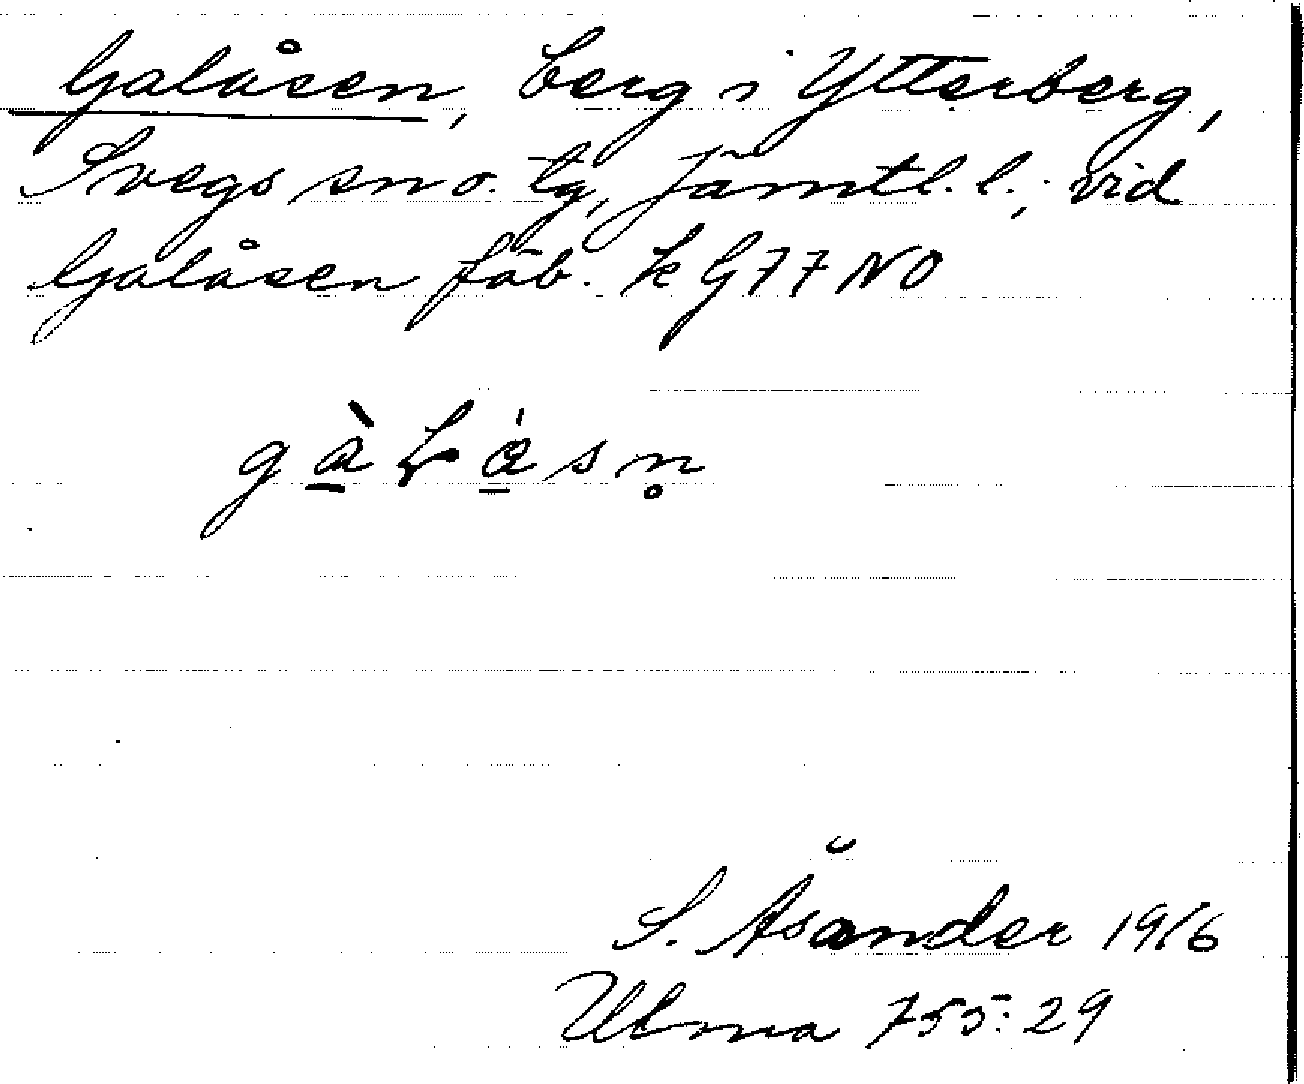 Galåsen, berg i Ytterberg,
Svegs sn o. tg, Jämtl. l.; vid
Galåsen fäb. k G77NO
S. Åsander 1916
Ulma 755:29